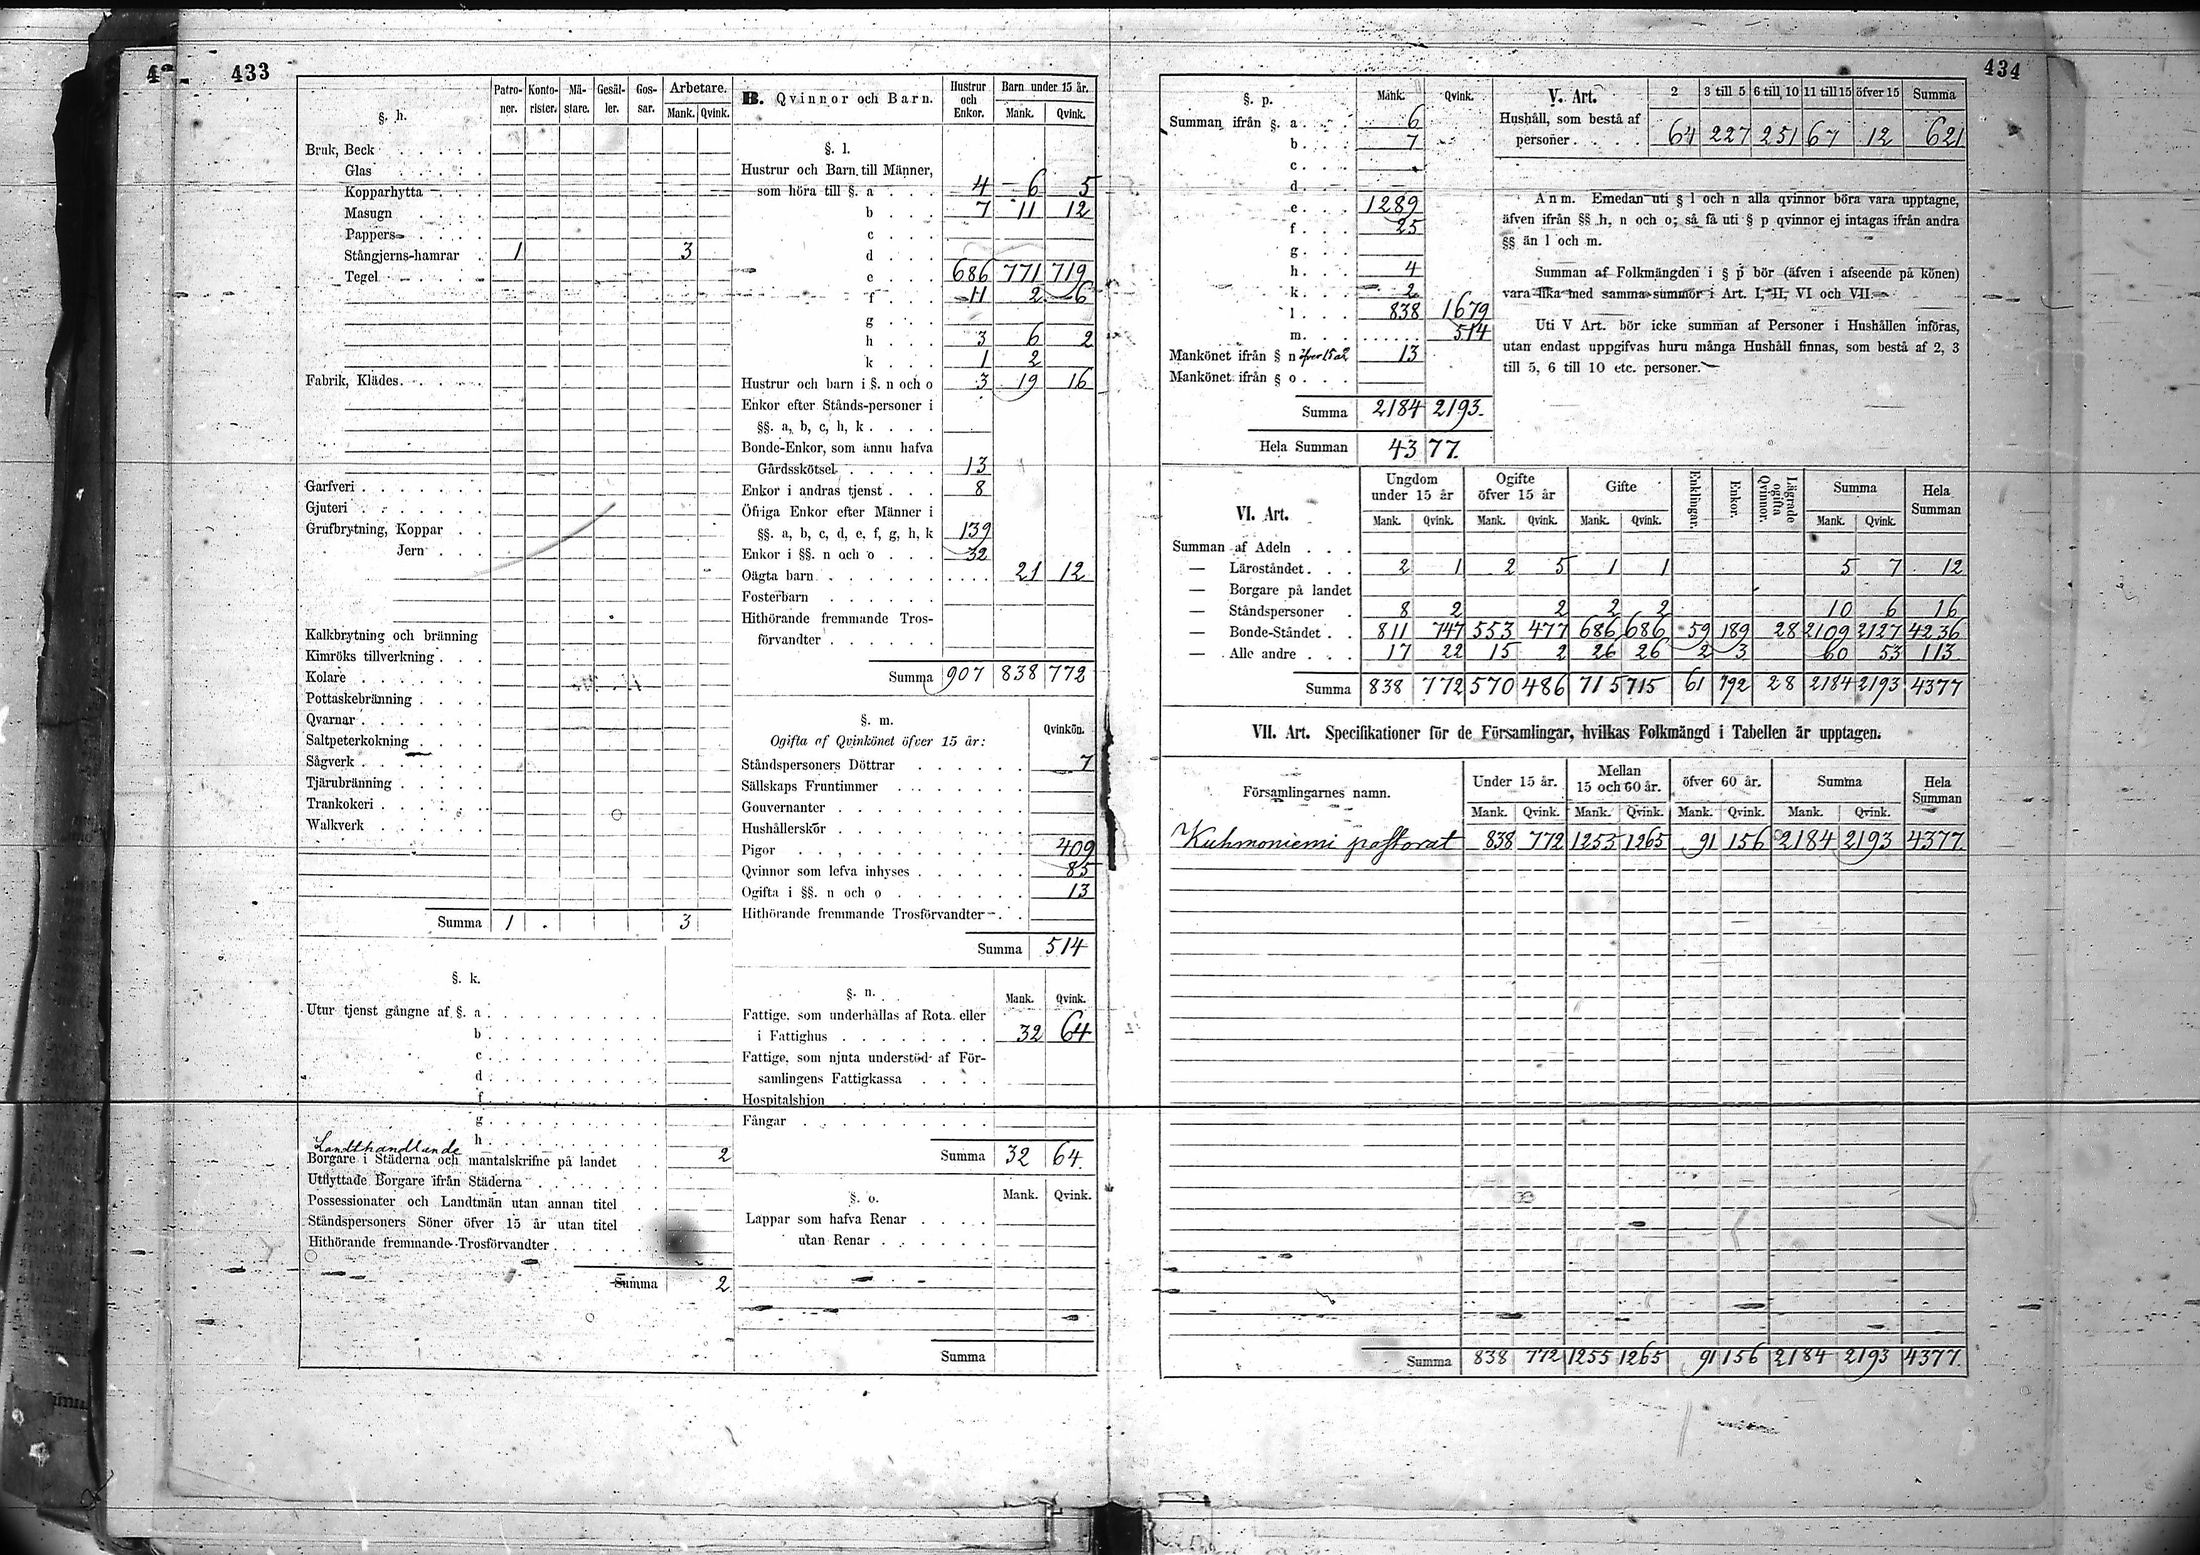 433
§. h. Patroner. Kontorister. Mästare. Gesäller. Gossar. Arbetare. Mank. Qvink.
Bruk, Beck
Glas
Kopparhytta
Masugn
Pappers
Stångjerns-hamrar 1 3
Tegel
Fabrik, Klädes
Garfveri
Gjuteri
Grufbrytning, Koppar
Jern
Kalkbrytning och bränning
Kimröks tillverkning
Kolare
Pottaskebränning
Qvarnar
Saltpeterkokning
Sågverk
Tjärubränning
Trankokeri
Walkverk
Summa 1 3
§. k.
Utur tjenst gångne af §. a
b
c
d
f
g
h
Landthandlande
Borgare i Städerna och mantalskrifne på landet 2
Utflyttade Borgare ifrån Städerna
Possessionater och Landtmän utan annan titel
Ståndspersoners Söner öfver 15 år utan titel
Hithörande fremmande Trosförvandter
Summa 2
B. Qvinnor och Barn. Hustrur och Enkor. Barn under 15 år. Mank. Qvink.
§. l.
Hustrur och Barn till Männer,
som höra till §. a 4 6 5
b 7 11 12
c
d
e 686 771 719
f 11 2 6
g
h 3 6 2
k 1 2
Hustrur och barn i §. n och o 3 19 16
Enkor efter Stånds-personer i
§§. a, b, c, h, k
Bonde-Enkor, som ännu hafva
Gårdsskötsel 13
Enkor i andras tjenst 8
Öfriga Enkor efter Männer i
§§. a, b, c, d, e, f, g, h, k 139
Enkor i §§. n och o 32
Oägta barn 21 12
Fosterbarn
Hithörande fremmande Trosförvandter
Summa 907 838 772
§. m.
Ogifta af Qvinkönet öfver 15 år: Qvinkön.
Ståndspersoners Döttrar 7
Sällskaps Fruntimmer
Gouvernanter
Hushållerskor
Pigor 409
Qvinnor som lefva inhyses 85
Ogifta i §§. n och o 13
Hithörande fremmande Trosförvandter
Summa 514
§. n. Mank. Qvink.
Fattige, som underhållas af Rota eller
i Fattighus 32 64
Fattige, som njuta understöd af Församlingens Fattigkassa
Hospitalshjon
Fångar
Summa 32 64
§. o. Mank. Qvink.
Lappar som hafva Renar
utan Renar
Summa
434
§. p. Mank. Qvink.
Summan ifrån §. a 6
b 7
c
d
e 1289
f 25
g
h 4
k 2
l 838 1679
m 514
Mankönet ifrån § n öfver 15 år 13
Mankönet ifrån § o
Summa 2184 2193
Hela Summan 4377
V. Art. 2 3 till 5 6 till 10 11 till 15 öfver 15 Summa
Hushåll, som bestå af
personer 64 227 251 67 12 621
Anm. Emedan uti § l och n alla qvinnor böra vara upptagne,
äfven ifrån §§ h, n och o; så få uti § p qvinnor ej intagas ifrån andra
§§ än l och m.
Summan af Folkmängden i § p bör (äfven i afseende på könen)
vara lika med samma summor i Art. I, II, VI och VII.
Uti V Art. bör icke summan af Personer i Hushållen införas,
utan endast uppgifvas huru många Hushåll finnas, som bestå af 2, 3
till 5, 6 till 10 etc. personer.
VI. Art. Ungdom under 15 år Ogifte öfver 15 år Gifte Enklingar. Enkor. Lägrade ogifta Qvinnor. Summa Hela Summan
Mank. Qvink. Mank. Qvink. Mank. Qvink. Mank. Qvink.
Summan af Adeln
— Läroståndet 2 1 2 5 1 1 5 7 12
— Borgare på landet
— Ståndspersoner 8 2 2 2 2 10 6 16
— Bonde-Ståndet 811 747 553 477 686 686 59 189 28 2109 2127 4236
— Alle andre 17 22 15 2 26 26 2 3 60 53 113
Summa 838 772 570 486 715 715 61 192 28 2184 2193 4377
VII. Art. Specifikationer för de Församlingar, hvilkas Folkmängd i Tabellen är upptagen.
Församlingarnes namn. Under 15 år. Mellan 15 och 60 år. öfver 60 år. Summa Hela Summan
Mank. Qvink. Mank. Qvink. Mank. Qvink. Mank. Qvink.
Kuhmoniemi pastorat 838 772 1255 1265 91 156 2184 2193 4377
Summa 838 772 1255 1265 91 156 2184 2193 4377